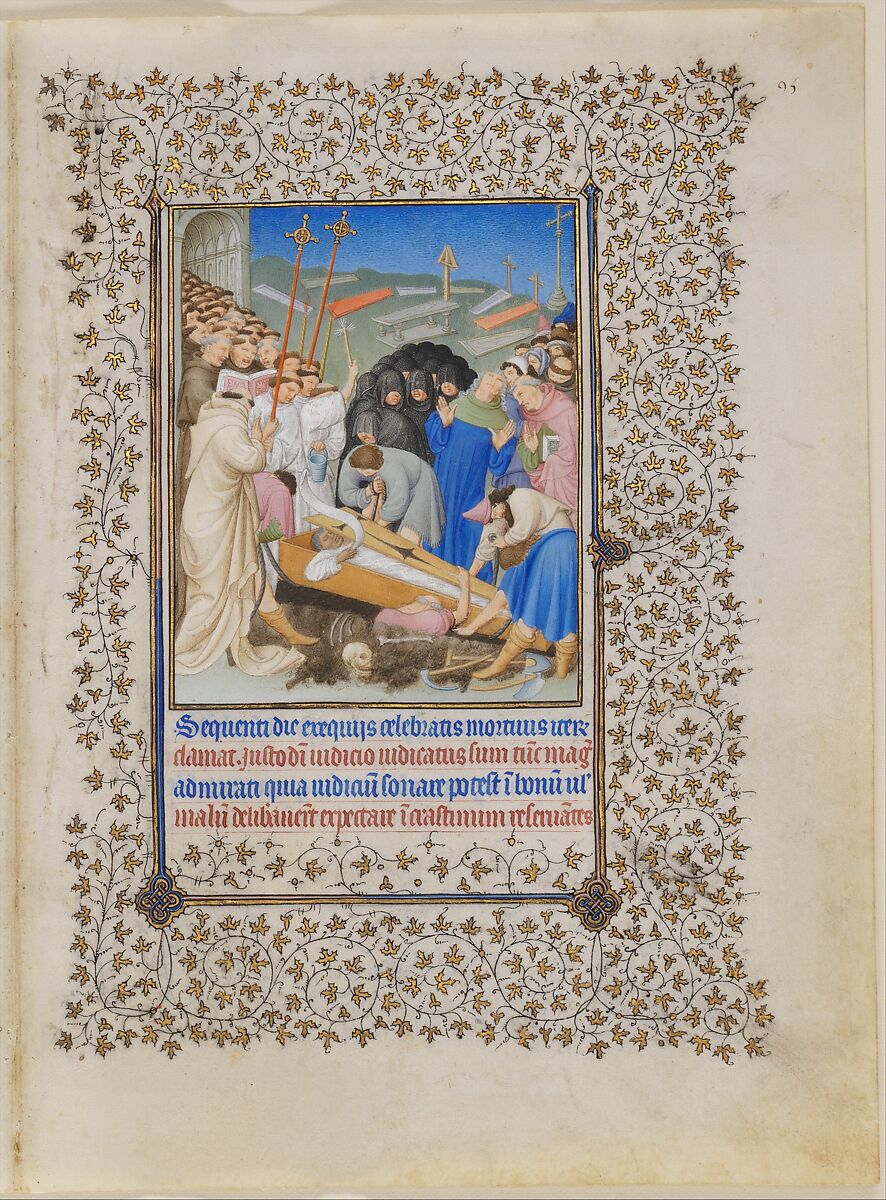 95
Sequenti die exequiis celebratis mortuus iter̄
clamat. Justo dī iudicio iudicatus sum tūc magr̄
admirati quia iudiciū sonare potest ī bonū ul'
malū delibauer̄t expectare ī crastinum reseruātes